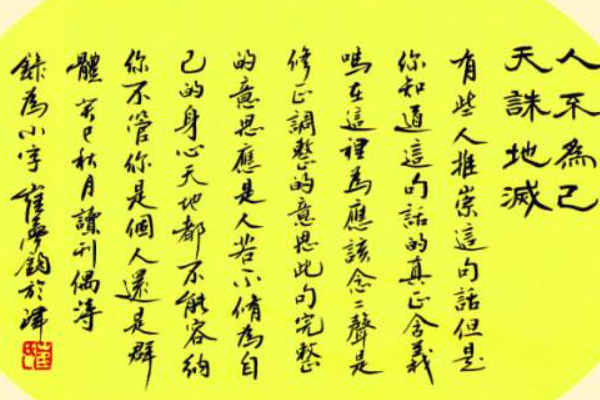 人不為己
天誅地滅
有些人推崇這句話但是
你知道這句話的真正含義
嗎在這裡為應該念二聲是
修正調整的意思此句完整
的意思應是人若不脩為自
己的身心天地都不能容納
你不管你是個人還是群
體 癸巳秋月讀刊偶得
錄為小字 崔灣鈞於津